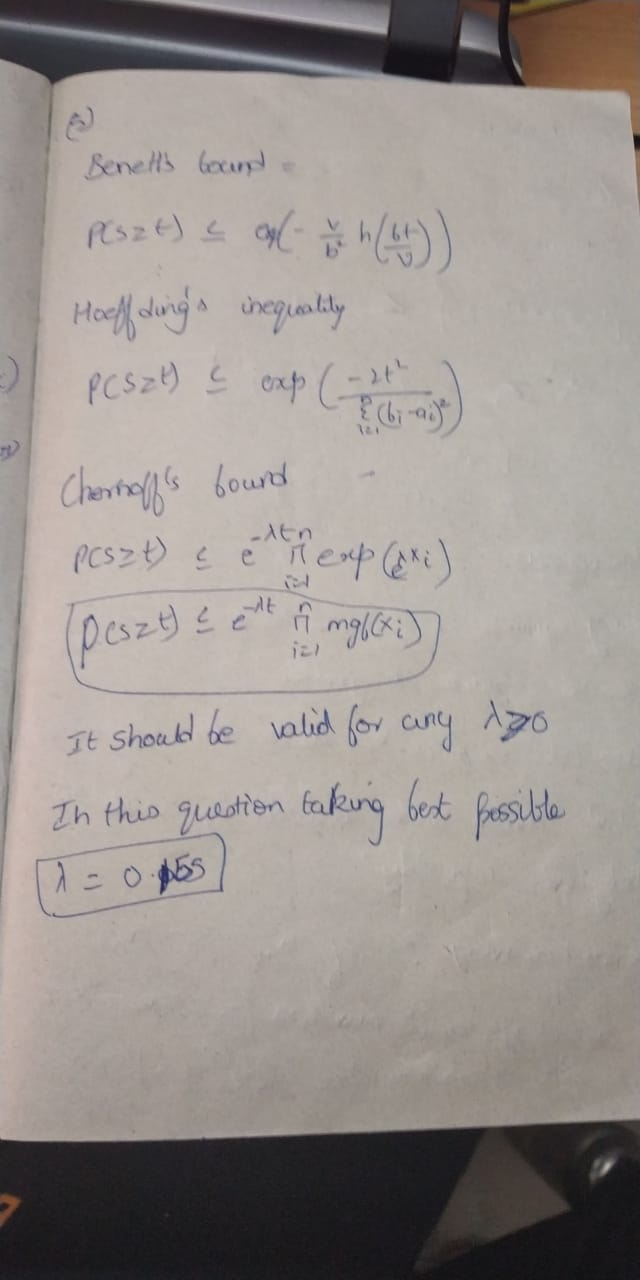 Benett's bound -
P(S≥t) ≤ exp(- v/b² h(bt/v))
Hoeffding's inequality
P(S≥t) ≤ exp(-2t² / Σ_{i=1}^{n}(bi-ai)²)
Chernoff's bound -
P(S≥t) ≤ e^{-λt} Π_{i=1}^{n} exp(e^{λxi})
P(S≥t) ≤ e^{-λt} Π_{i=1}^{n} mgf(xi)
It should be valid for any λ≥0
In this question taking best possible